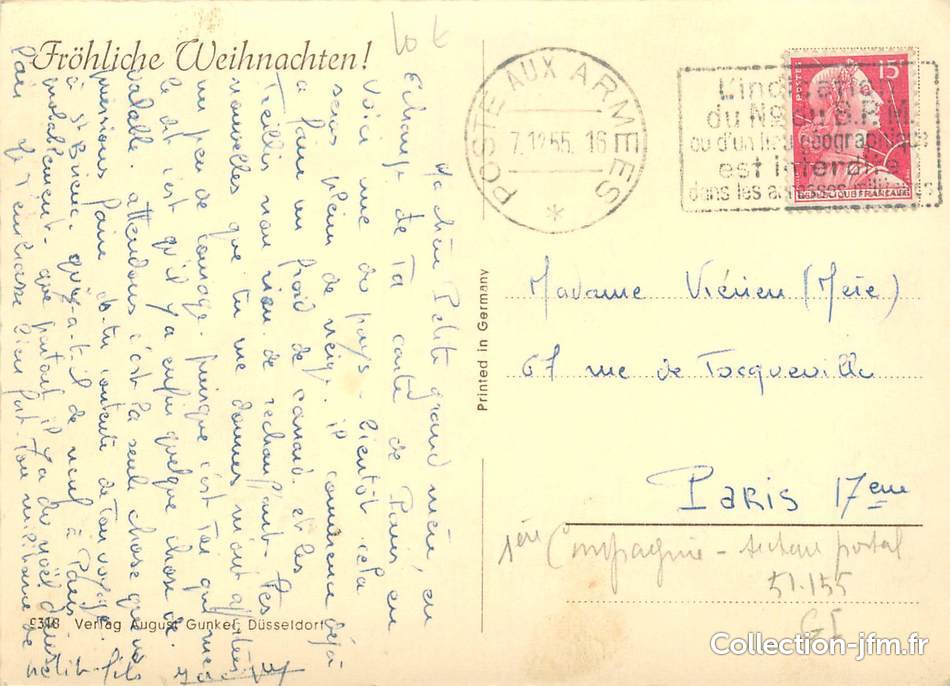 Fröhliche Weihnachten!
10 €
Ma chère Petite grand mère, en
échange de Ta carte de Paris en
voici une du pays. Bientôt cela
sera plein de neige. il commence déjà
à faire un froid de canard. et les
Treillis n'ont rien de rechauffant. Tes
nouvelles que tu me donnes m'ont apporté
un peu de courage. puisque c'est Toi qui me
le dit c'est qu'il y a enfin quelque chose de
valable. attendons c'est la seule chose que nous
puissions faire. es-tu contente de Ton voyage
à St Brieuc. qu'y-a-t-il de neuf à Paris
probablement que partout il y a du noël dans
l'air. Je T'embrasse bien fort. Ton militaire de
petit fils
Jacques
5318 Verlag August Gunkel, Düsseldorf
Printed in Germany
POSTE AUX ARMEES
7.12.55. 16
*
L'indication
du No du S.P.M.
ou d'un lieu géographique
est interdite
dans les adresses militaires
POSTES
15F
REPUBLIQUE FRANCAISE
Madame Viénien (Mère)
67 rue de Tocqueville
PARIS 17eme
1ère Compagnie - secteur postal
51.155
GI
Collection-jfm.fr